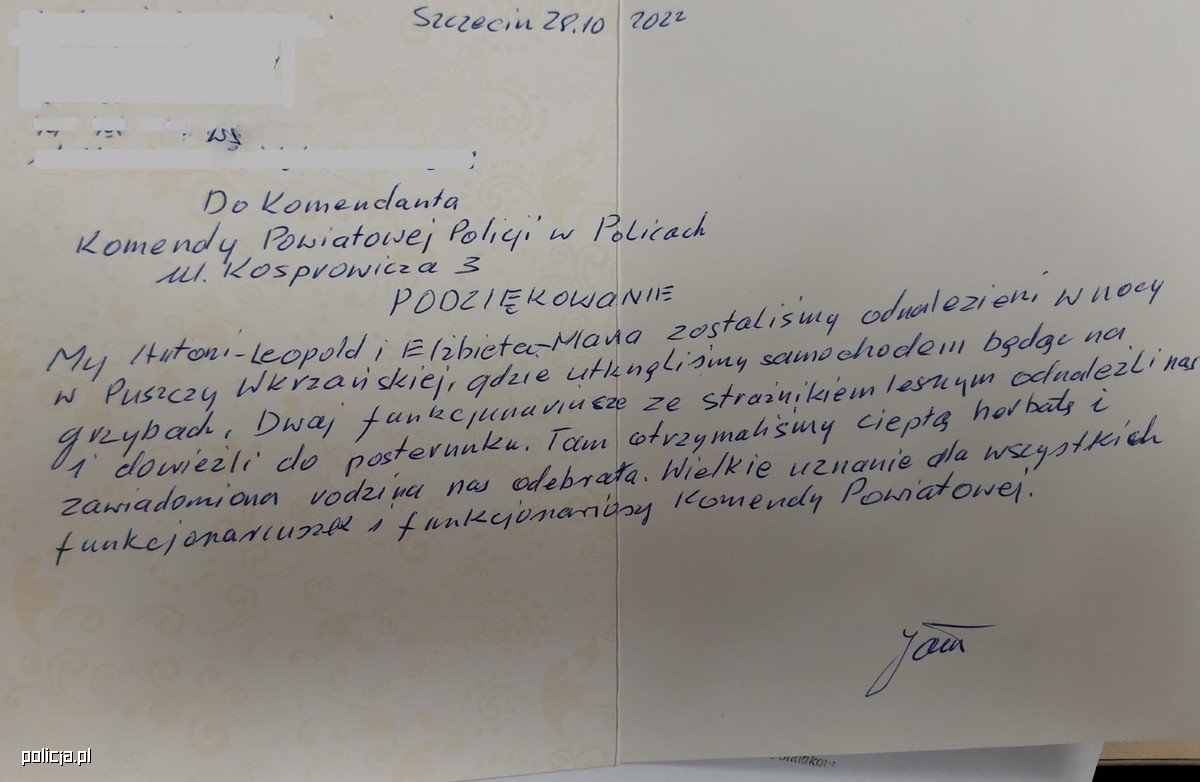 Szczecin 28.10 2022
Do Komendanta
Komendy Powiatowej Policji w Policach
ul. Kosprowicza 3
PODZIĘKOWANIE
My Antoni-Leopold i Elżbieta-Maria zostaliśmy odnalezieni w nocy
w Puszczy Wkrzańskiej, gdzie utknęliśmy samochodem będąc na
grzybach. Dwaj funkcjonariusze ze strażnikiem leśnym odnaleźli nas
i dowieźli do posterunku. Tam otrzymaliśmy ciepłą herbatę i
zawiadomiona rodzina nas odebrała. Wielkie uznanie dla wszystkich
funkcjonariuszek i funkcjonariuszy Komendy Powiatowej.
policja.pl